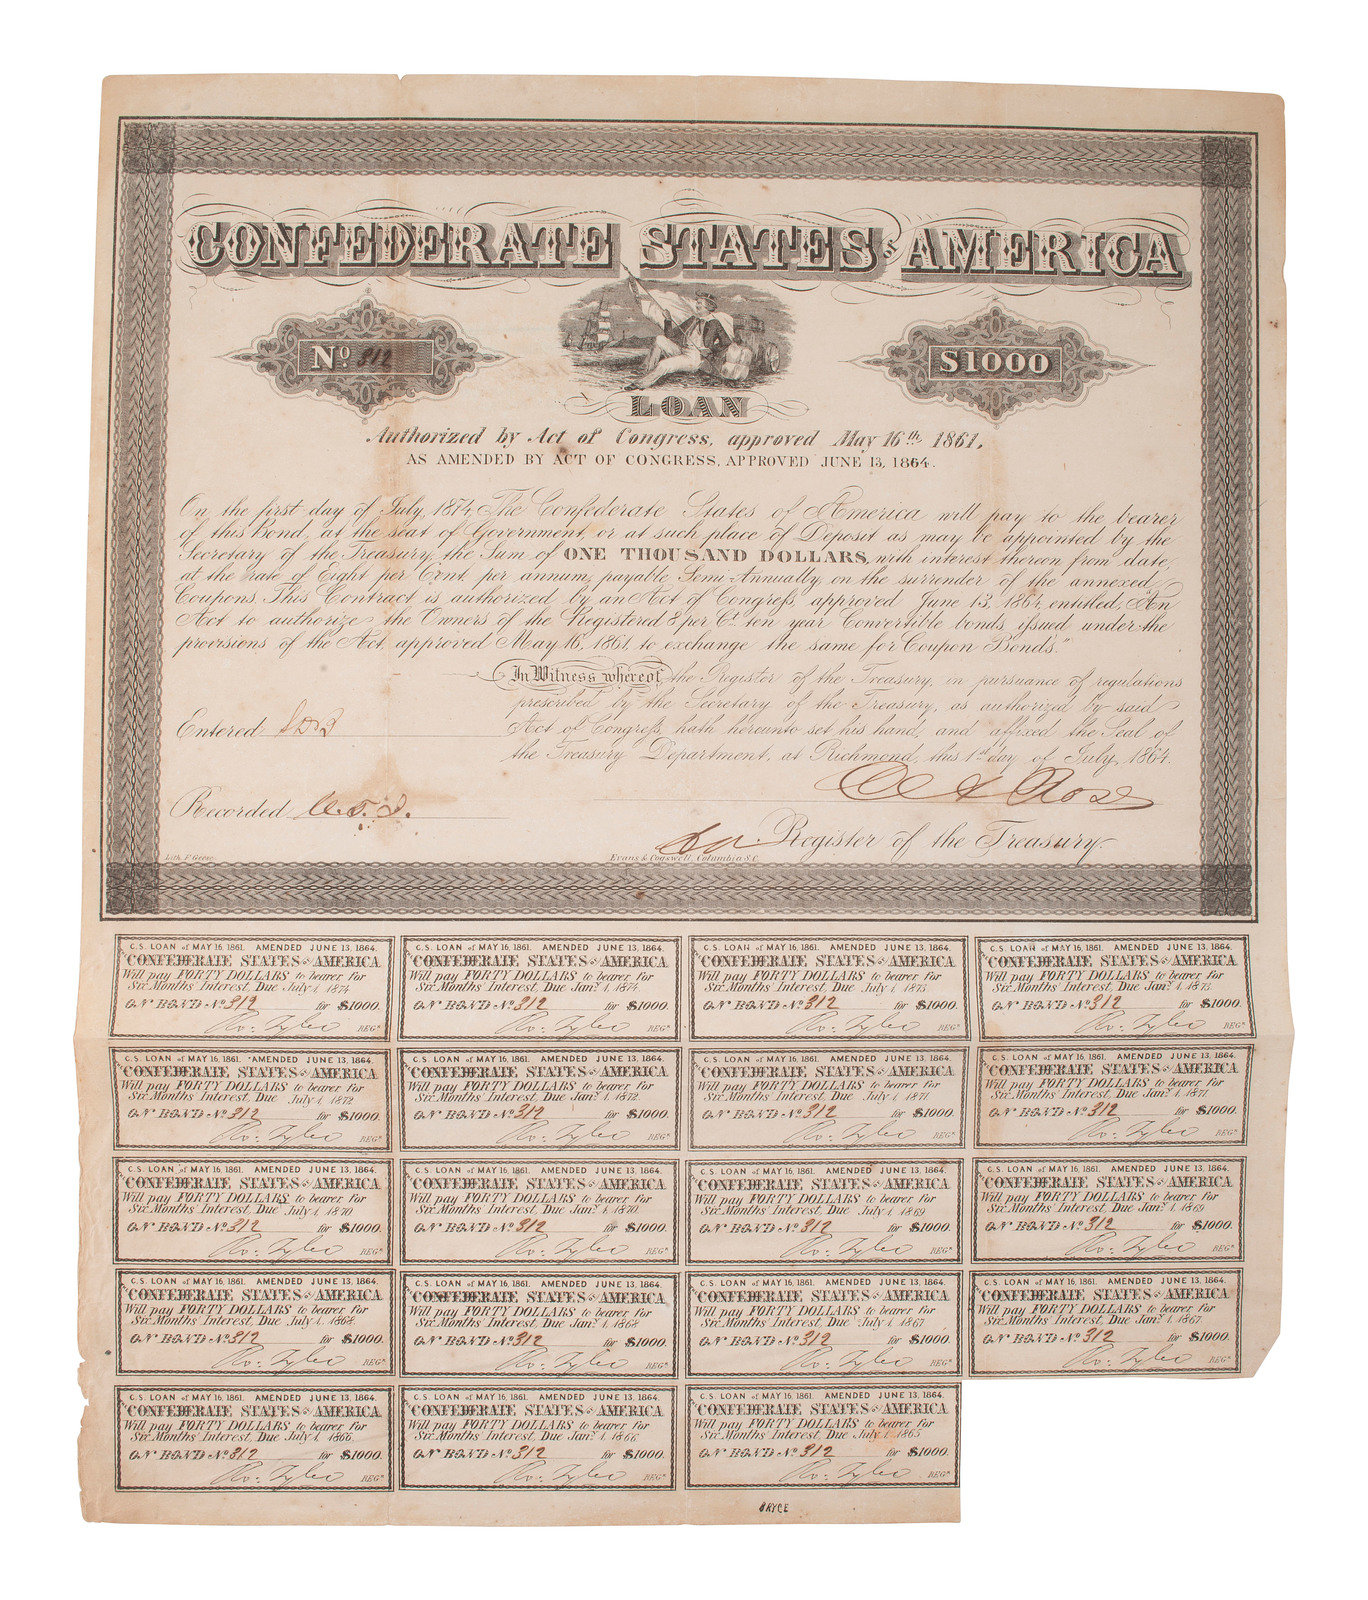 CONFEDERATE STATES OF AMERICA
No. 312
$1000
LOAN
Authorized by Act of Congress, approved May 16th, 1861.
AS AMENDED BY ACT OF CONGRESS, APPROVED JUNE 13, 1864.
On the first day of July, 1874, The Confederate States of America will pay to the bearer
of this Bond, at the seat of Government, or at such place of Deposit as may be appointed by the
Secretary of the Treasury, the Sum of ONE THOUSAND DOLLARS, with interest thereon from date,
at the rate of Eight per Cent. per annum, payable Semi-Annually on the surrender of the annexed
Coupons. This Contract is authorized by an Act of Congress, approved June 13, 1864, entitled, "An
Act to authorize the Owners of the Registered 8 per Ct. ten year Convertible bonds, issued under the
provisions of the Act, approved May 16, 1861, to exchange the same for Coupon Bonds."
In Witness whereof, the Register of the Treasury, in pursuance of regulations
prescribed by the Secretary of the Treasury, as authorized by said
Entered
Act of Congress, hath hereunto set his hand, and affixed the Seal of
the Treasury Department, at Richmond, this 1st day of July, 1864.
Recorded
Register of the Treasury
Lith. F. Geese
Evans & Cogswell, Columbia S.C.
C.S. LOAN of MAY 16, 1861. AMENDED JUNE 13, 1864.
THE CONFEDERATE STATES OF AMERICA
Will pay FORTY DOLLARS to bearer for
Six Months Interest, Due July 1, 1874
ON BOND No 312 for $1000.
Ro: Tyler REGR
C.S. LOAN of MAY 16, 1861. AMENDED JUNE 13, 1864.
THE CONFEDERATE STATES OF AMERICA
Will pay FORTY DOLLARS to bearer for
Six Months Interest, Due Jany 1, 1874
ON BOND No 312 for $1000.
Ro: Tyler REGR
C.S. LOAN of MAY 16, 1861. AMENDED JUNE 13, 1864.
THE CONFEDERATE STATES OF AMERICA
Will pay FORTY DOLLARS to bearer for
Six Months Interest, Due July 1, 1873
ON BOND No 312 for $1000.
Ro: Tyler REGR
C.S. LOAN of MAY 16, 1861. AMENDED JUNE 13, 1864.
THE CONFEDERATE STATES OF AMERICA
Will pay FORTY DOLLARS to bearer for
Six Months Interest, Due Jany 1, 1873
ON BOND No 312 for $1000.
Ro: Tyler REGR
C.S. LOAN of MAY 16, 1861. AMENDED JUNE 13, 1864.
THE CONFEDERATE STATES OF AMERICA
Will pay FORTY DOLLARS to bearer for
Six Months Interest, Due July 1, 1872
ON BOND No 312 for $1000.
Ro: Tyler REGR
C.S. LOAN of MAY 16, 1861. AMENDED JUNE 13, 1864.
THE CONFEDERATE STATES OF AMERICA
Will pay FORTY DOLLARS to bearer for
Six Months Interest, Due Jany 1, 1872
ON BOND No 312 for $1000.
Ro: Tyler REGR
C.S. LOAN of MAY 16, 1861. AMENDED JUNE 13, 1864.
THE CONFEDERATE STATES OF AMERICA
Will pay FORTY DOLLARS to bearer for
Six Months Interest, Due July 1, 1871
ON BOND No 312 for $1000.
Ro: Tyler REGR
C.S. LOAN of MAY 16, 1861. AMENDED JUNE 13, 1864.
THE CONFEDERATE STATES OF AMERICA
Will pay FORTY DOLLARS to bearer for
Six Months Interest, Due Jany 1, 1871
ON BOND No 312 for $1000.
Ro: Tyler REGR
C.S. LOAN of MAY 16, 1861. AMENDED JUNE 13, 1864.
THE CONFEDERATE STATES OF AMERICA
Will pay FORTY DOLLARS to bearer for
Six Months Interest, Due July 1, 1870
ON BOND No 312 for $1000.
Ro: Tyler REGR
C.S. LOAN of MAY 16, 1861. AMENDED JUNE 13, 1864.
THE CONFEDERATE STATES OF AMERICA
Will pay FORTY DOLLARS to bearer for
Six Months Interest, Due Jany 1, 1870
ON BOND No 312 for $1000.
Ro: Tyler REGR
C.S. LOAN of MAY 16, 1861. AMENDED JUNE 13, 1864.
THE CONFEDERATE STATES OF AMERICA
Will pay FORTY DOLLARS to bearer for
Six Months Interest, Due July 1, 1869
ON BOND No 312 for $1000.
Ro: Tyler REGR
C.S. LOAN of MAY 16, 1861. AMENDED JUNE 13, 1864.
THE CONFEDERATE STATES OF AMERICA
Will pay FORTY DOLLARS to bearer for
Six Months Interest, Due Jany 1, 1869
ON BOND No 312 for $1000.
Ro: Tyler REGR
C.S. LOAN of MAY 16, 1861. AMENDED JUNE 13, 1864.
THE CONFEDERATE STATES OF AMERICA
Will pay FORTY DOLLARS to bearer for
Six Months Interest, Due July 1, 1868
ON BOND No 312 for $1000.
Ro: Tyler REGR
C.S. LOAN of MAY 16, 1861. AMENDED JUNE 13, 1864.
THE CONFEDERATE STATES OF AMERICA
Will pay FORTY DOLLARS to bearer for
Six Months Interest, Due Jany 1, 1868
ON BOND No 312 for $1000.
Ro: Tyler REGR
C.S. LOAN of MAY 16, 1861. AMENDED JUNE 13, 1864.
THE CONFEDERATE STATES OF AMERICA
Will pay FORTY DOLLARS to bearer for
Six Months Interest, Due July 1, 1867
ON BOND No 312 for $1000.
Ro: Tyler REGR
C.S. LOAN of MAY 16, 1861. AMENDED JUNE 13, 1864.
THE CONFEDERATE STATES OF AMERICA
Will pay FORTY DOLLARS to bearer for
Six Months Interest, Due Jany 1, 1867.
ON BOND No 312 for $1000.
Ro: Tyler REGR
C.S. LOAN of MAY 16, 1861. AMENDED JUNE 13, 1864.
THE CONFEDERATE STATES OF AMERICA
Will pay FORTY DOLLARS to bearer for
Six Months Interest, Due July 1, 1866
ON BOND No 312 for $1000.
Ro: Tyler REGR
C.S. LOAN of MAY 16, 1861. AMENDED JUNE 13, 1864.
THE CONFEDERATE STATES OF AMERICA
Will pay FORTY DOLLARS to bearer for
Six Months Interest, Due Jany 1, 1866
ON BOND No 312 for $1000.
Ro: Tyler REGR
C.S. LOAN of MAY 16, 1861. AMENDED JUNE 13, 1864.
THE CONFEDERATE STATES OF AMERICA
Will pay FORTY DOLLARS to bearer for
Six Months Interest, Due July 1, 1865
ON BOND No 312 for $1000.
Ro: Tyler REGR
BRYCE